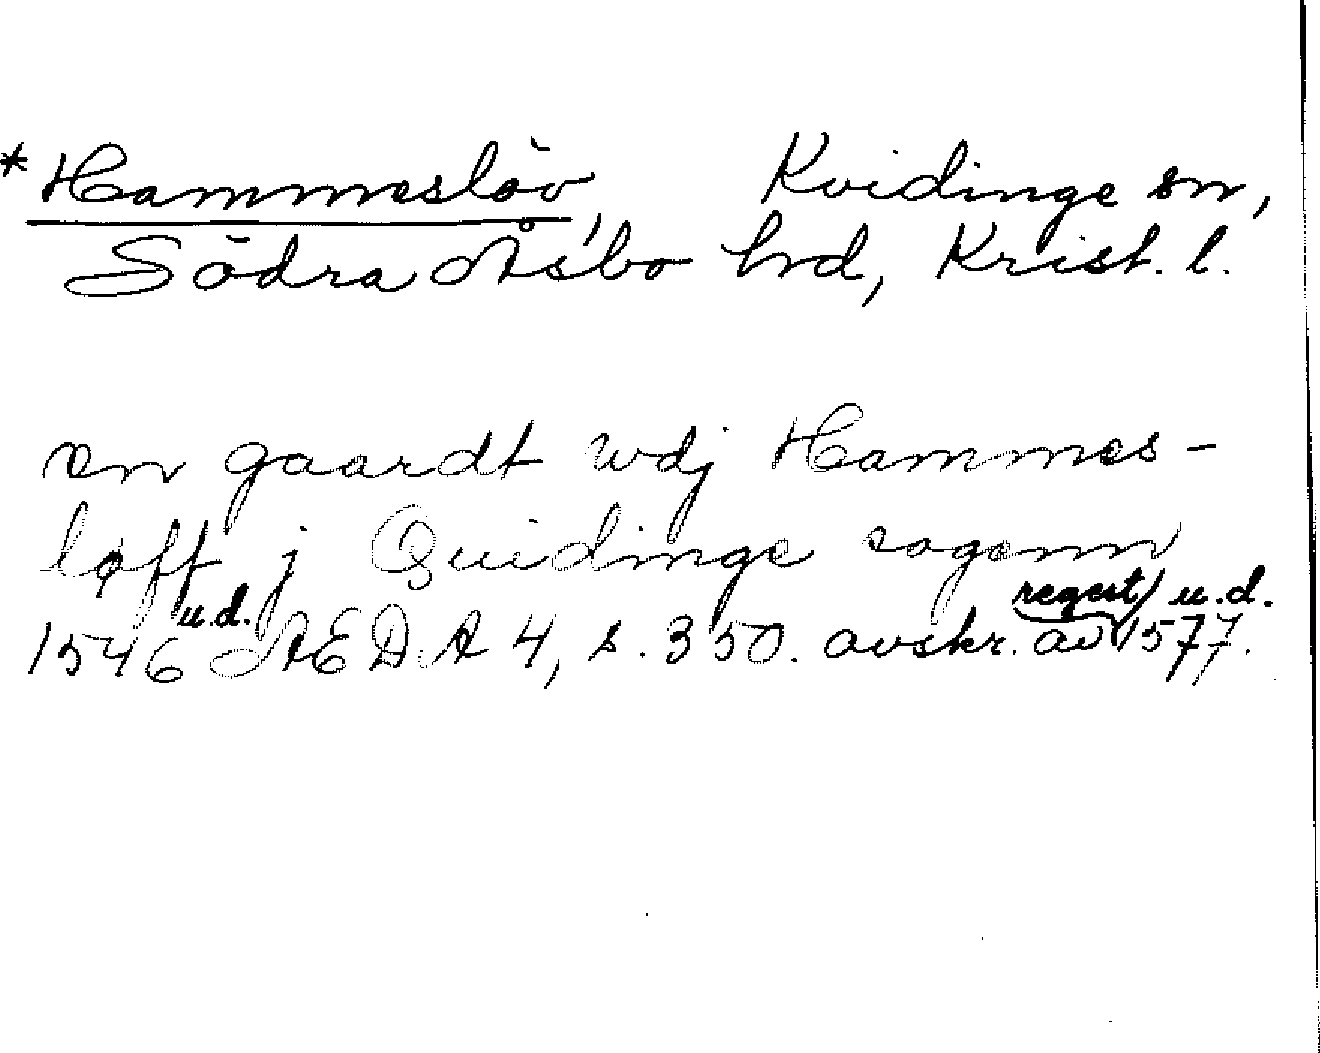 *Hammeslöv, Kvidinge sn,
Södra Åsbo hd, Krist. l.
en gaardt wdj Hammes-
løft j Quidinge sogenn
1546 u.d. ÆDA 4, s. 350. avskr. av regest 1577 u.d.